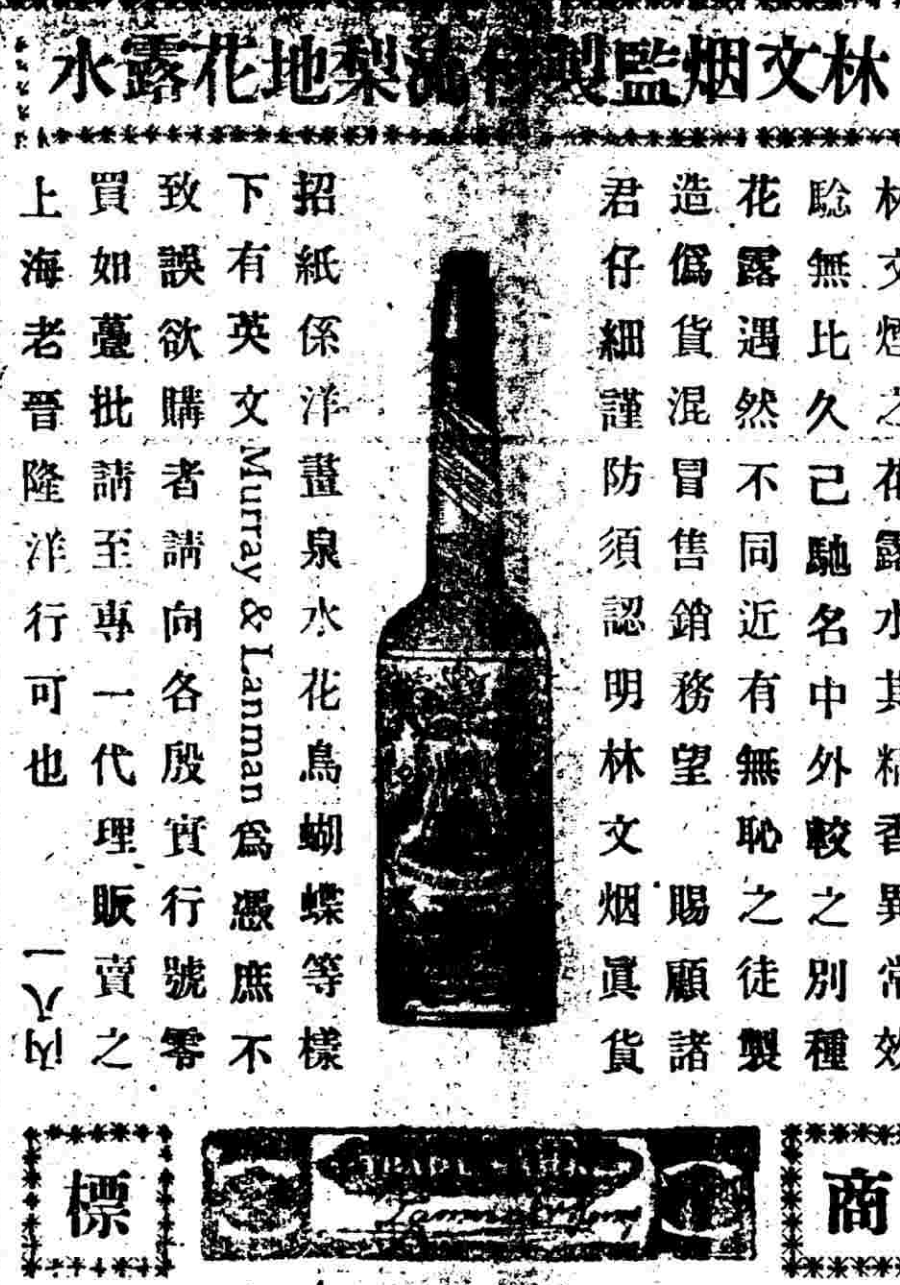 林文烟監製梨地花露水
林文煙之花露水其精香異常效
騐無比久己馳名中外較之別種
花露遇然不同近有無恥之徒製
造僞貨混冒售銷務望 賜顧諸
君仔細謹防須認明林文烟眞貨
招紙係洋畫泉水花鳥蝴蝶等樣
下有英文Murray & Lanman爲憑庶不
致誤欲購者請向各殷實行號零
買如躉批請至專一代理販賣之
上海老晉隆洋行可也 一八內
商標